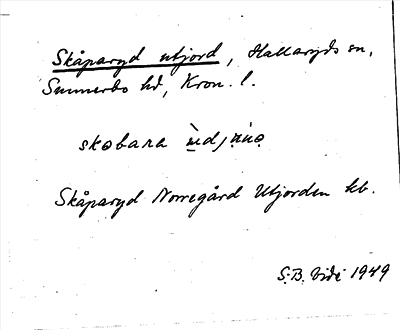 Skåparyd utjord, Hallaryds sn,
Sunnerbo hd, Kron. l.
skobara
Skåparyd Norregård Utjorden kb.
S.B. Vide 1949